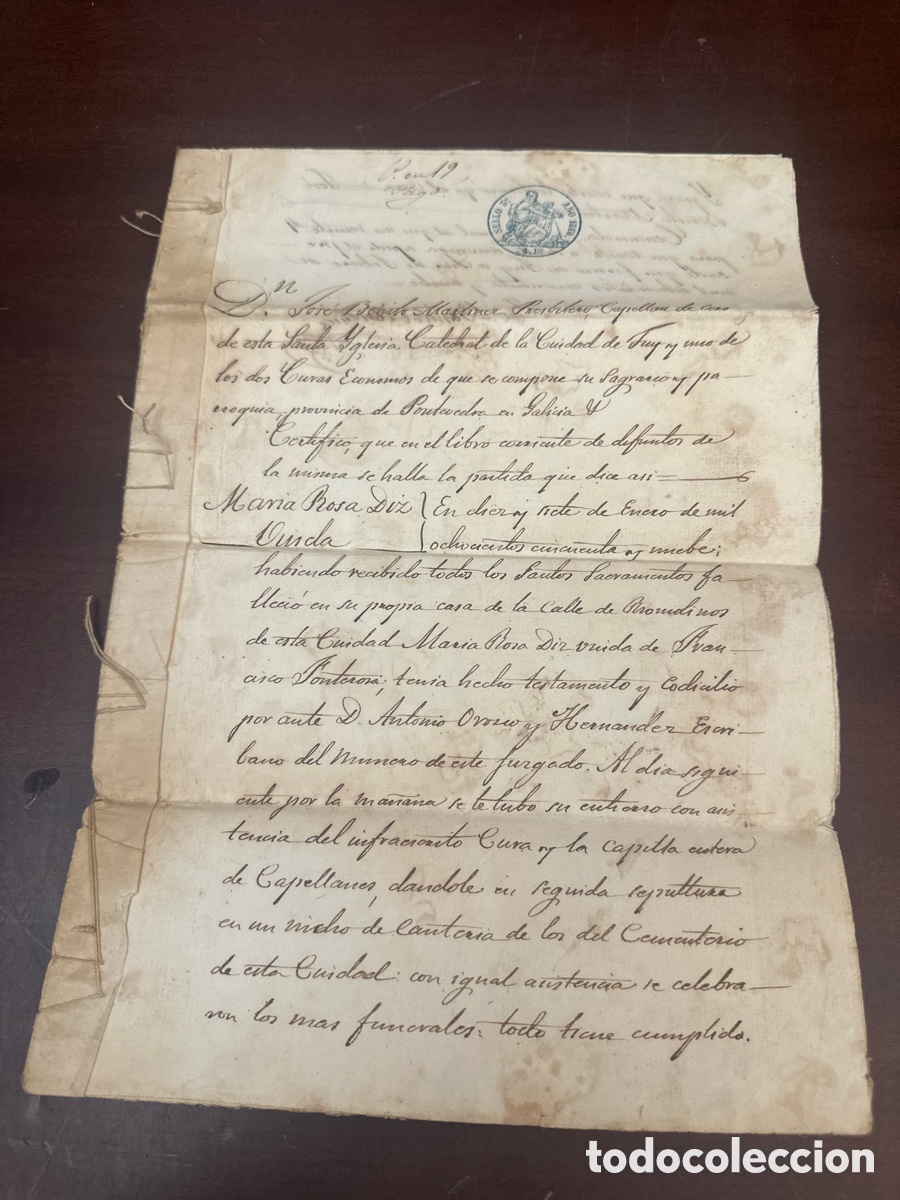 P. en 19
SELLO 9º AÑO 1859.
D.n José Benito Martinez Presbitero Capellan de coro
de esta Santa Yglesia Catedral de la Cuidad de Tuy y uno de
los dos Curas Economos de que se compone su Sagrario y pa-
rroquia, provincia de Pontevedra en Galicia &
Certifico, que en el libro corriente de difuntos de
la misma se halla la partida que dice asi
Maria Rosa Diz
Viuda
En diez y siete de Enero de mil
ochocientos cincuenta y nuebe;
habiendo recibido todos los Santos Sacramentos fa-
lleció en su propia casa de la Calle de
de esta Cuidad Maria Rosa Diz viuda de Fran-
cisco Fonterosa; tenia hecho testamento y Codicilio
por ante D. Antonio Orozco y Hernandez Escri-
bano del Numero de este Juzgado. Al dia sigui-
ente por la mañana se le tubo su entierro con asis
tencia del infraescrito Cura y la Capilla entera
de Capellanes, dandole en seguida sepultura
en un nicho de Canteria de los del Cementerio
de esta Cuidad: con igual asistencia se celebra-
ron los mas funerales: todo tiene cumplido.
todocoleccion